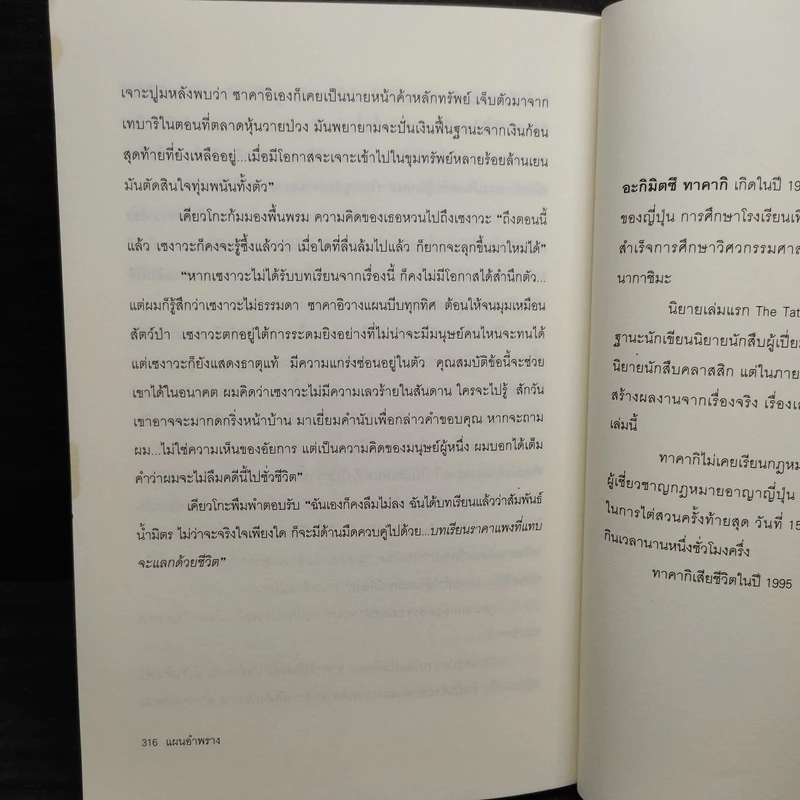 เจาะปูมหลังพบว่า ซาคาอิเองก็เคยเป็นนายหน้าค้าหลักทรัพย์ เจ็บตัวมาจาก
เทบาริในตอนที่ตลาดหุ้นวายป่วง มันพยายามจะปั่นเงินฟื้นฐานะจากเงินก้อน
สุดท้ายที่ยังเหลืออยู่...เมื่อมีโอกาสจะเจาะเข้าไปในขุมทรัพย์หลายร้อยล้านเยน
มันตัดสินใจทุ่มพนันทั้งตัว”
เคียวโกะก้มมองพื้นพรม ความคิดของเธอหวนไปถึงเซงาวะ “ถึงตอนนี้
แล้ว เซงาวะก็คงจะรู้ซึ้งแล้วว่า เมื่อใดที่ลื่นล้มไปแล้ว ก็ยากจะลุกขึ้นมาใหม่ได้”
“หากเซงาวะไม่ได้รับบทเรียนจากเรื่องนี้ ก็คงไม่มีโอกาสได้สำนึกตัว...
แต่ผมก็รู้สึกว่าเซงาวะไม่ธรรมดา ซาคาอิวางแผนบีบทุกทิศ ต้อนให้จนมุมเหมือน
สัตว์ป่า เซงาวะตกอยู่ใต้การระดมยิงอย่างที่ไม่น่าจะมีมนุษย์คนไหนจะทนได้
แต่เซงาวะก็ยังแสดงธาตุแท้ มีความแกร่งซ่อนอยู่ในตัว คุณสมบัติข้อนี้จะช่วย
เขาได้ในอนาคต ผมคิดว่าเซงาวะไม่มีความเลวร้ายในสันดาน ใครจะไปรู้ สักวัน
เขาอาจจะมากดกริ่งหน้าบ้าน มาเยี่ยมคำนับเพื่อกล่าวคำขอบคุณ หากจะถาม
ผม...ไม่ใช่ความเห็นของอัยการ แต่เป็นความคิดของมนุษย์ผู้หนึ่ง ผมบอกได้เต็ม
คำว่าผมจะไม่ลืมคดีนี้ไปชั่วชีวิต”
เคียวโกะพึมพำตอบรับ “ฉันเองก็คงลืมไม่ลง ฉันได้บทเรียนแล้วว่าสัมพันธ์
น้ำมิตร ไม่ว่าจะจริงใจเพียงใด ก็จะมีด้านมืดควบคู่ไปด้วย...บทเรียนราคาแพงที่แทบ
จะแลกด้วยชีวิต”
316 แผนอำพราง
อะกิมิตซึ ทาคากิ เกิดในปี 19
ของญี่ปุ่น การศึกษาโรงเรียนเที
สำเร็จการศึกษาวิศวกรรมศาส
นากาชิมะ
นิยายเล่มแรก The Tat
ฐานะนักเขียนนิยายนักสืบผู้เปี่ยม
นิยายนักสืบคลาสสิก แต่ในภาย
สร้างผลงานจากเรื่องจริง เรื่องเ
เล่มนี้
ทาคากิไม่เคยเรียนกฎหม
ผู้เชี่ยวชาญกฎหมายอาญาญี่ปุ่น
ในการไต่สวนครั้งท้ายสุด วันที่ 15
กินเวลานานหนึ่งชั่วโมงครึ่ง
ทาคากิเสียชีวิตในปี 1995